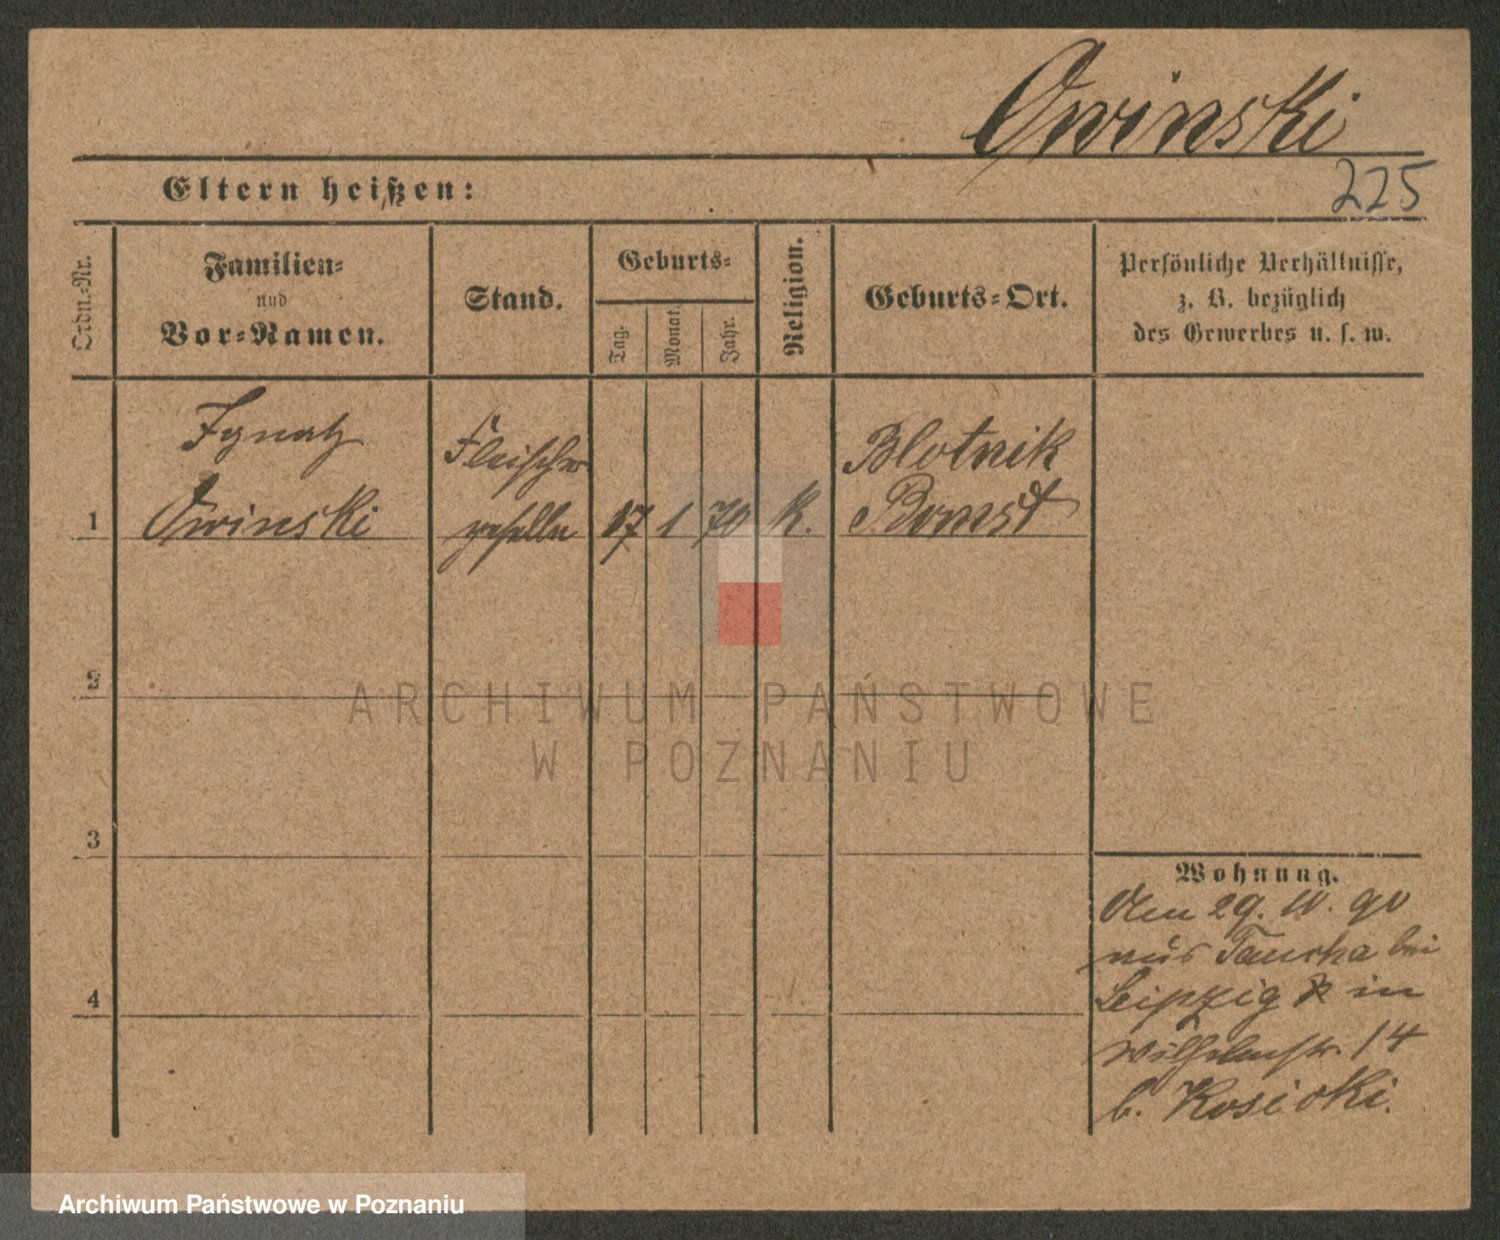 Owinski
225
Eltern heißen:
Ordn.-Nr.
Familien-
und
Vor-Namen.
Stand.
Geburts-
Tag.
Monat.
Jahr.
Religion.
Geburts-Ort.
Persönliche Verhältnisse,
z. B. bezüglich
des Gewerbes u. s. w.
1
Ignatz
Owinski
Fleischer
geselle
17
1
70
K.
Blotnik
Bomst
2
3
4
Wohnung.
Am 29. 10. 90
aus Taucha bei
Leipzig in
Wilhelmstr. 14
b. Kosicki.
ARCHIWUM PAŃSTWOWE
W POZNANIU
Archiwum Państwowe w Poznaniu